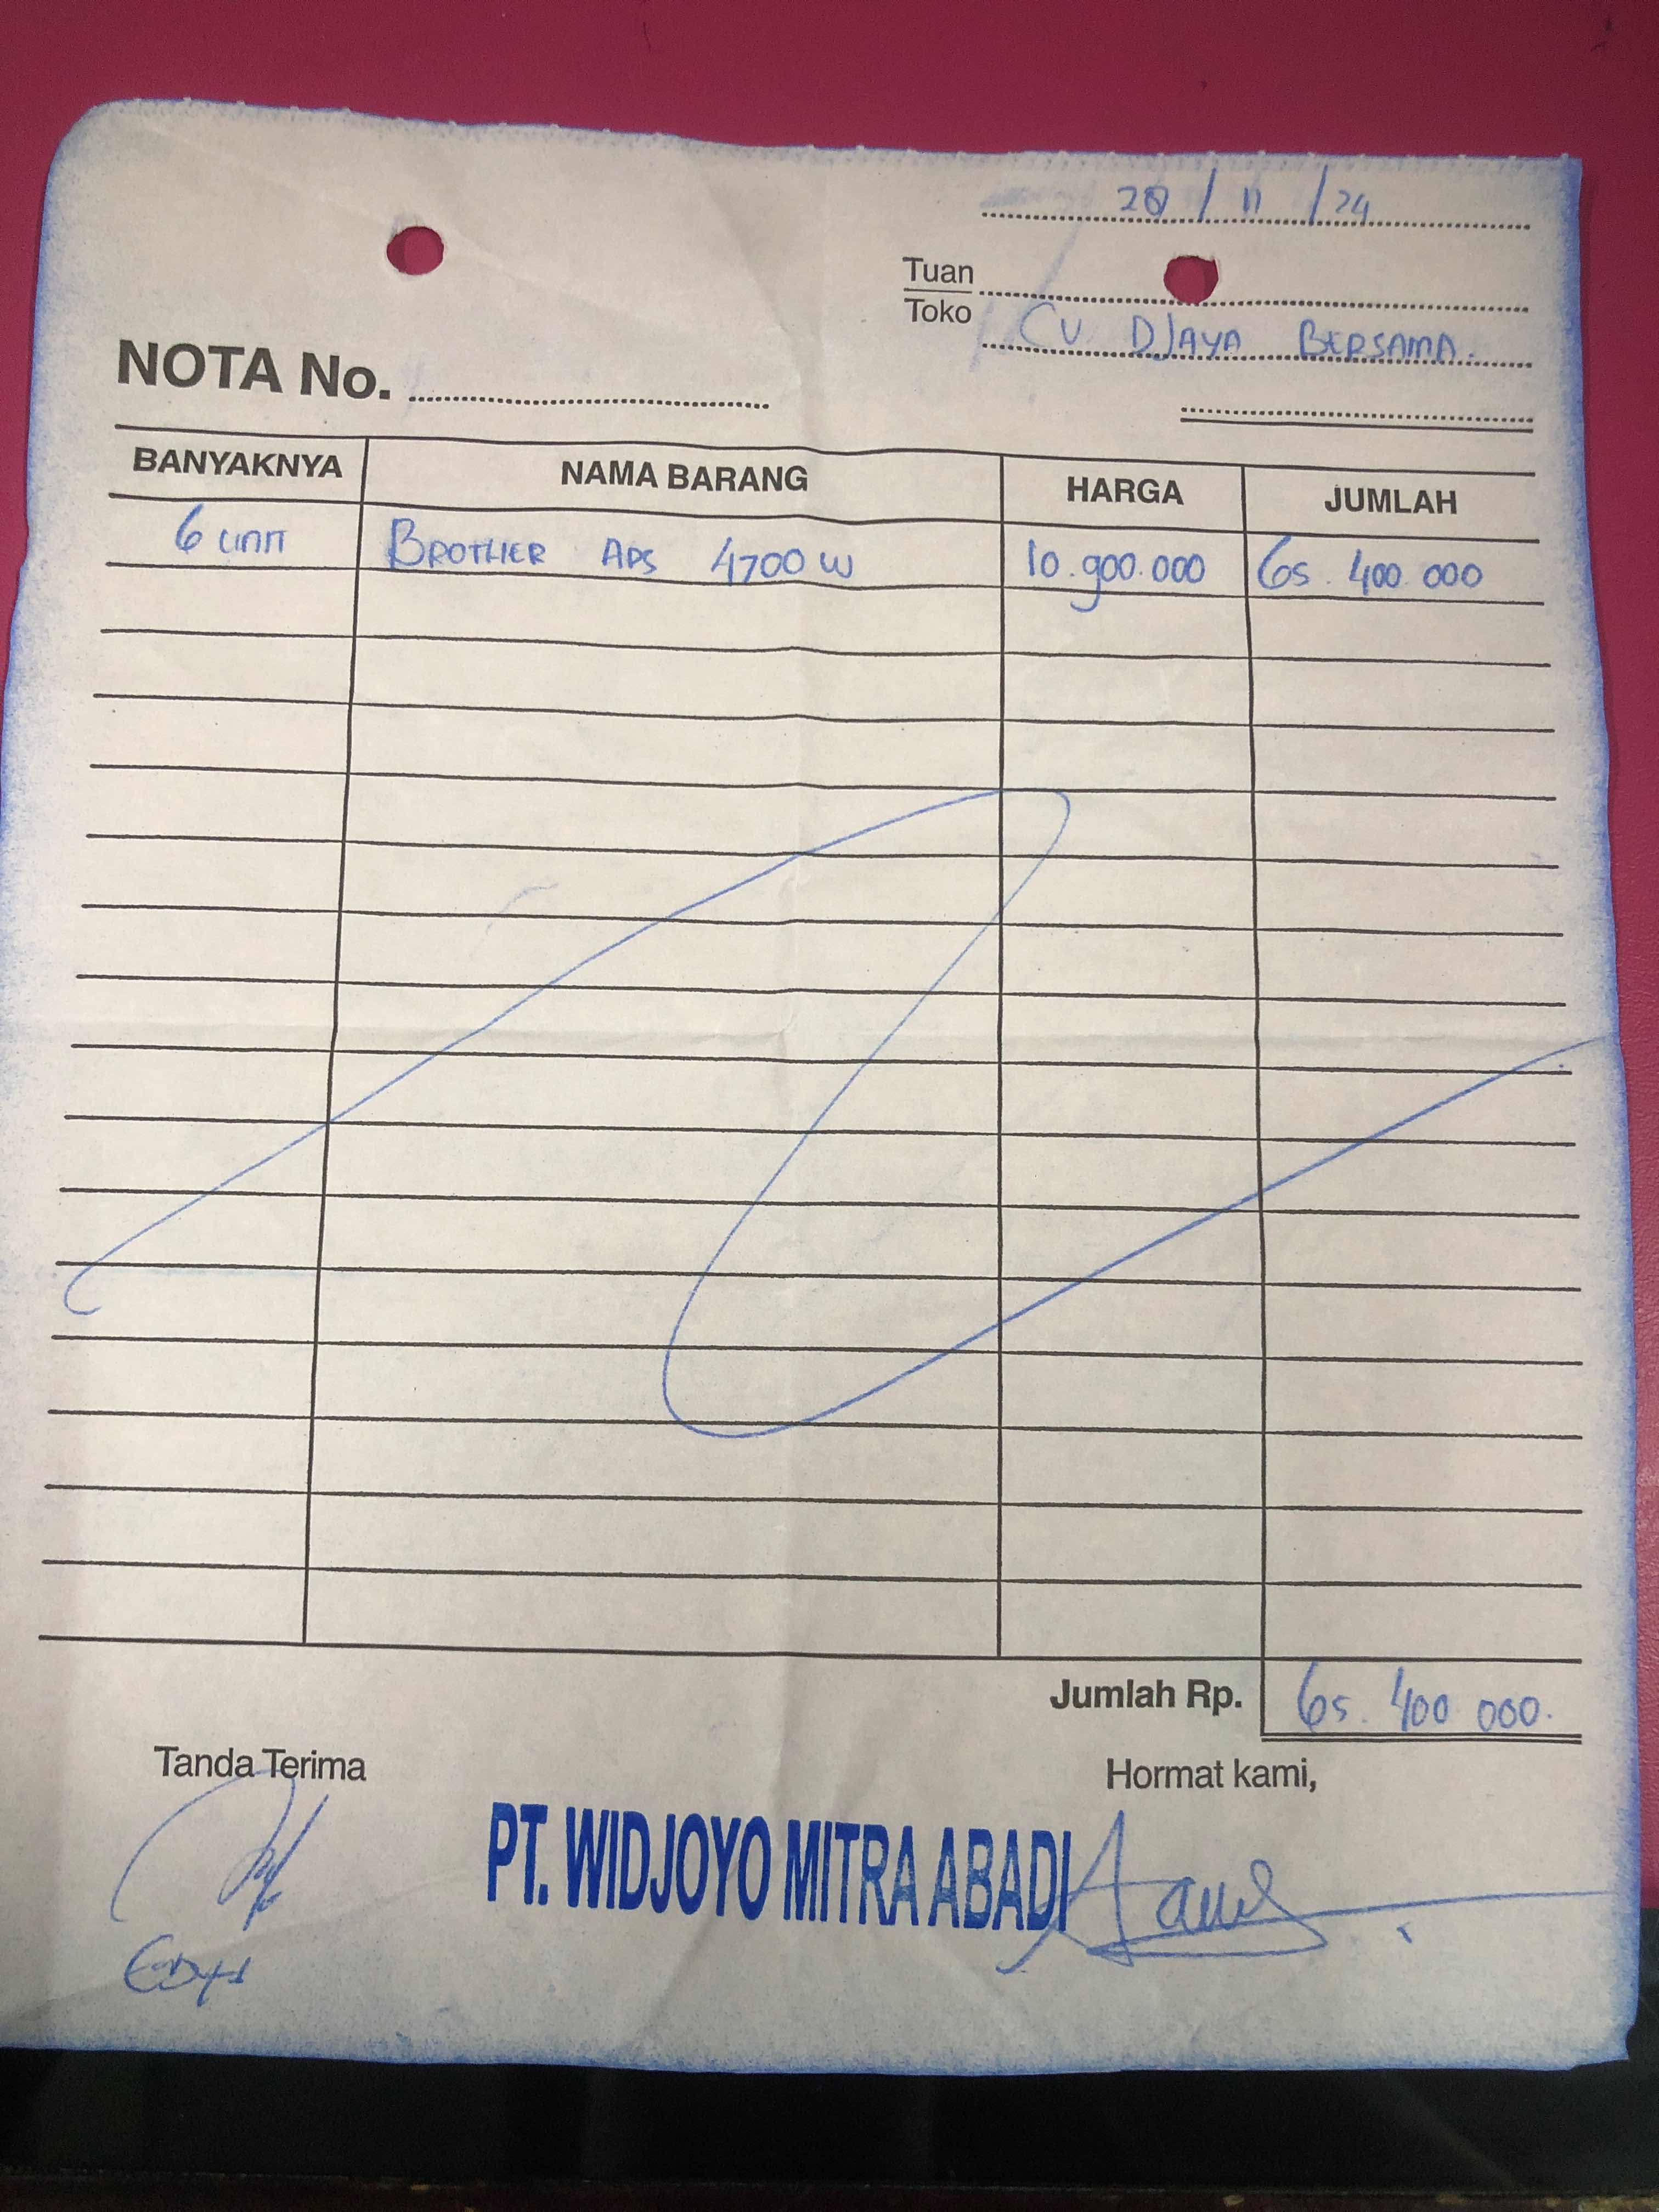 / 11 / 24
Tuan
Toko
CV. DJAYA BERSAMA.
NOTA No.
BANYAKNYA NAMA BARANG HARGA JUMLAH
6 UNIT BROTHER ADS 4700 W 10.900.000 65.400.000
Jumlah Rp. 65.400.000.
Tanda Terima Hormat kami,
PT. WIDJOYO MITRA ABADI